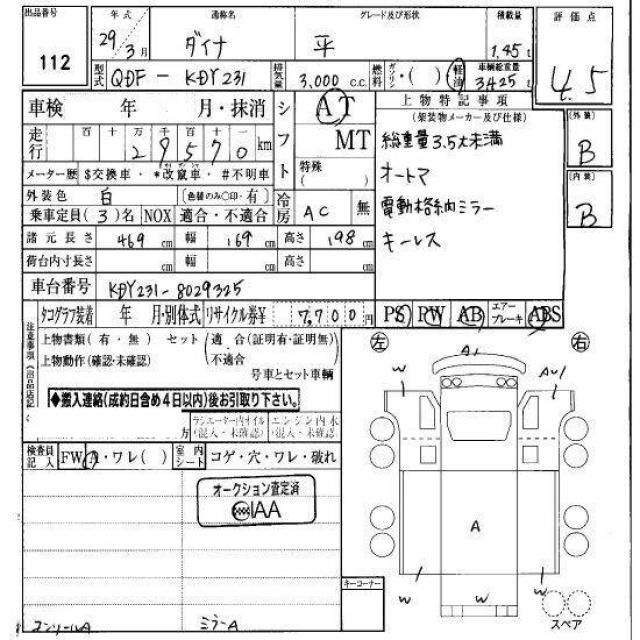 出品番号 年式 通称名 グレード及び形状 積載量 評価点
112 29年3月 ダイナ 平 1.45t 4.5
型式 QDF-KDY231 排気量 3,000 c.c. 燃料 ガソリン・( )軽油 車輌総重量 3425t
車検 年 月・抹消 シフト AT 上物特記事項
(架装物メーカー及び仕様)
走行 百 十 万 千 百 十 一
29570km
MT 総重量3.5t未満
メーター歴 $交換車・*改竄車・#不明車 特殊( ) オートマ
外装色 白 (色替のみ○印・有) 冷房 AC 無 電動格納ミラー
乗車定員(3)名 NOX 適合・不適合 キーレス
諸元長さ 469cm 幅 169cm 高さ 198cm
荷台内寸長さ cm 幅 cm 高さ cm
車台番号 KDY231-8029325
タコグラフ装着 年 月・別体式 リサイクル券¥ 7,700円 PS PW AB エアーブレーキ ABS
外装 B
内装 B
注意事項(出品店記
上物書類(有・無) セット(適合(証明有・証明無)
上物動作(確認・未確認) 不適合
号車とセット車輌
◆搬入連絡(成約日含め4日以内)後お引取り下さい。
ラジエーター内オイル(混入・未確認) エンジン内水(混入・未確認)
検査員記入 FW A・ワレ( ) 室内シート コゲ・穴・ワレ・破れ
オークション査定済
IAA
キーコーナー
コンソールA ミラーA
左 右
A1
W AU1
A
W W W W
スペア